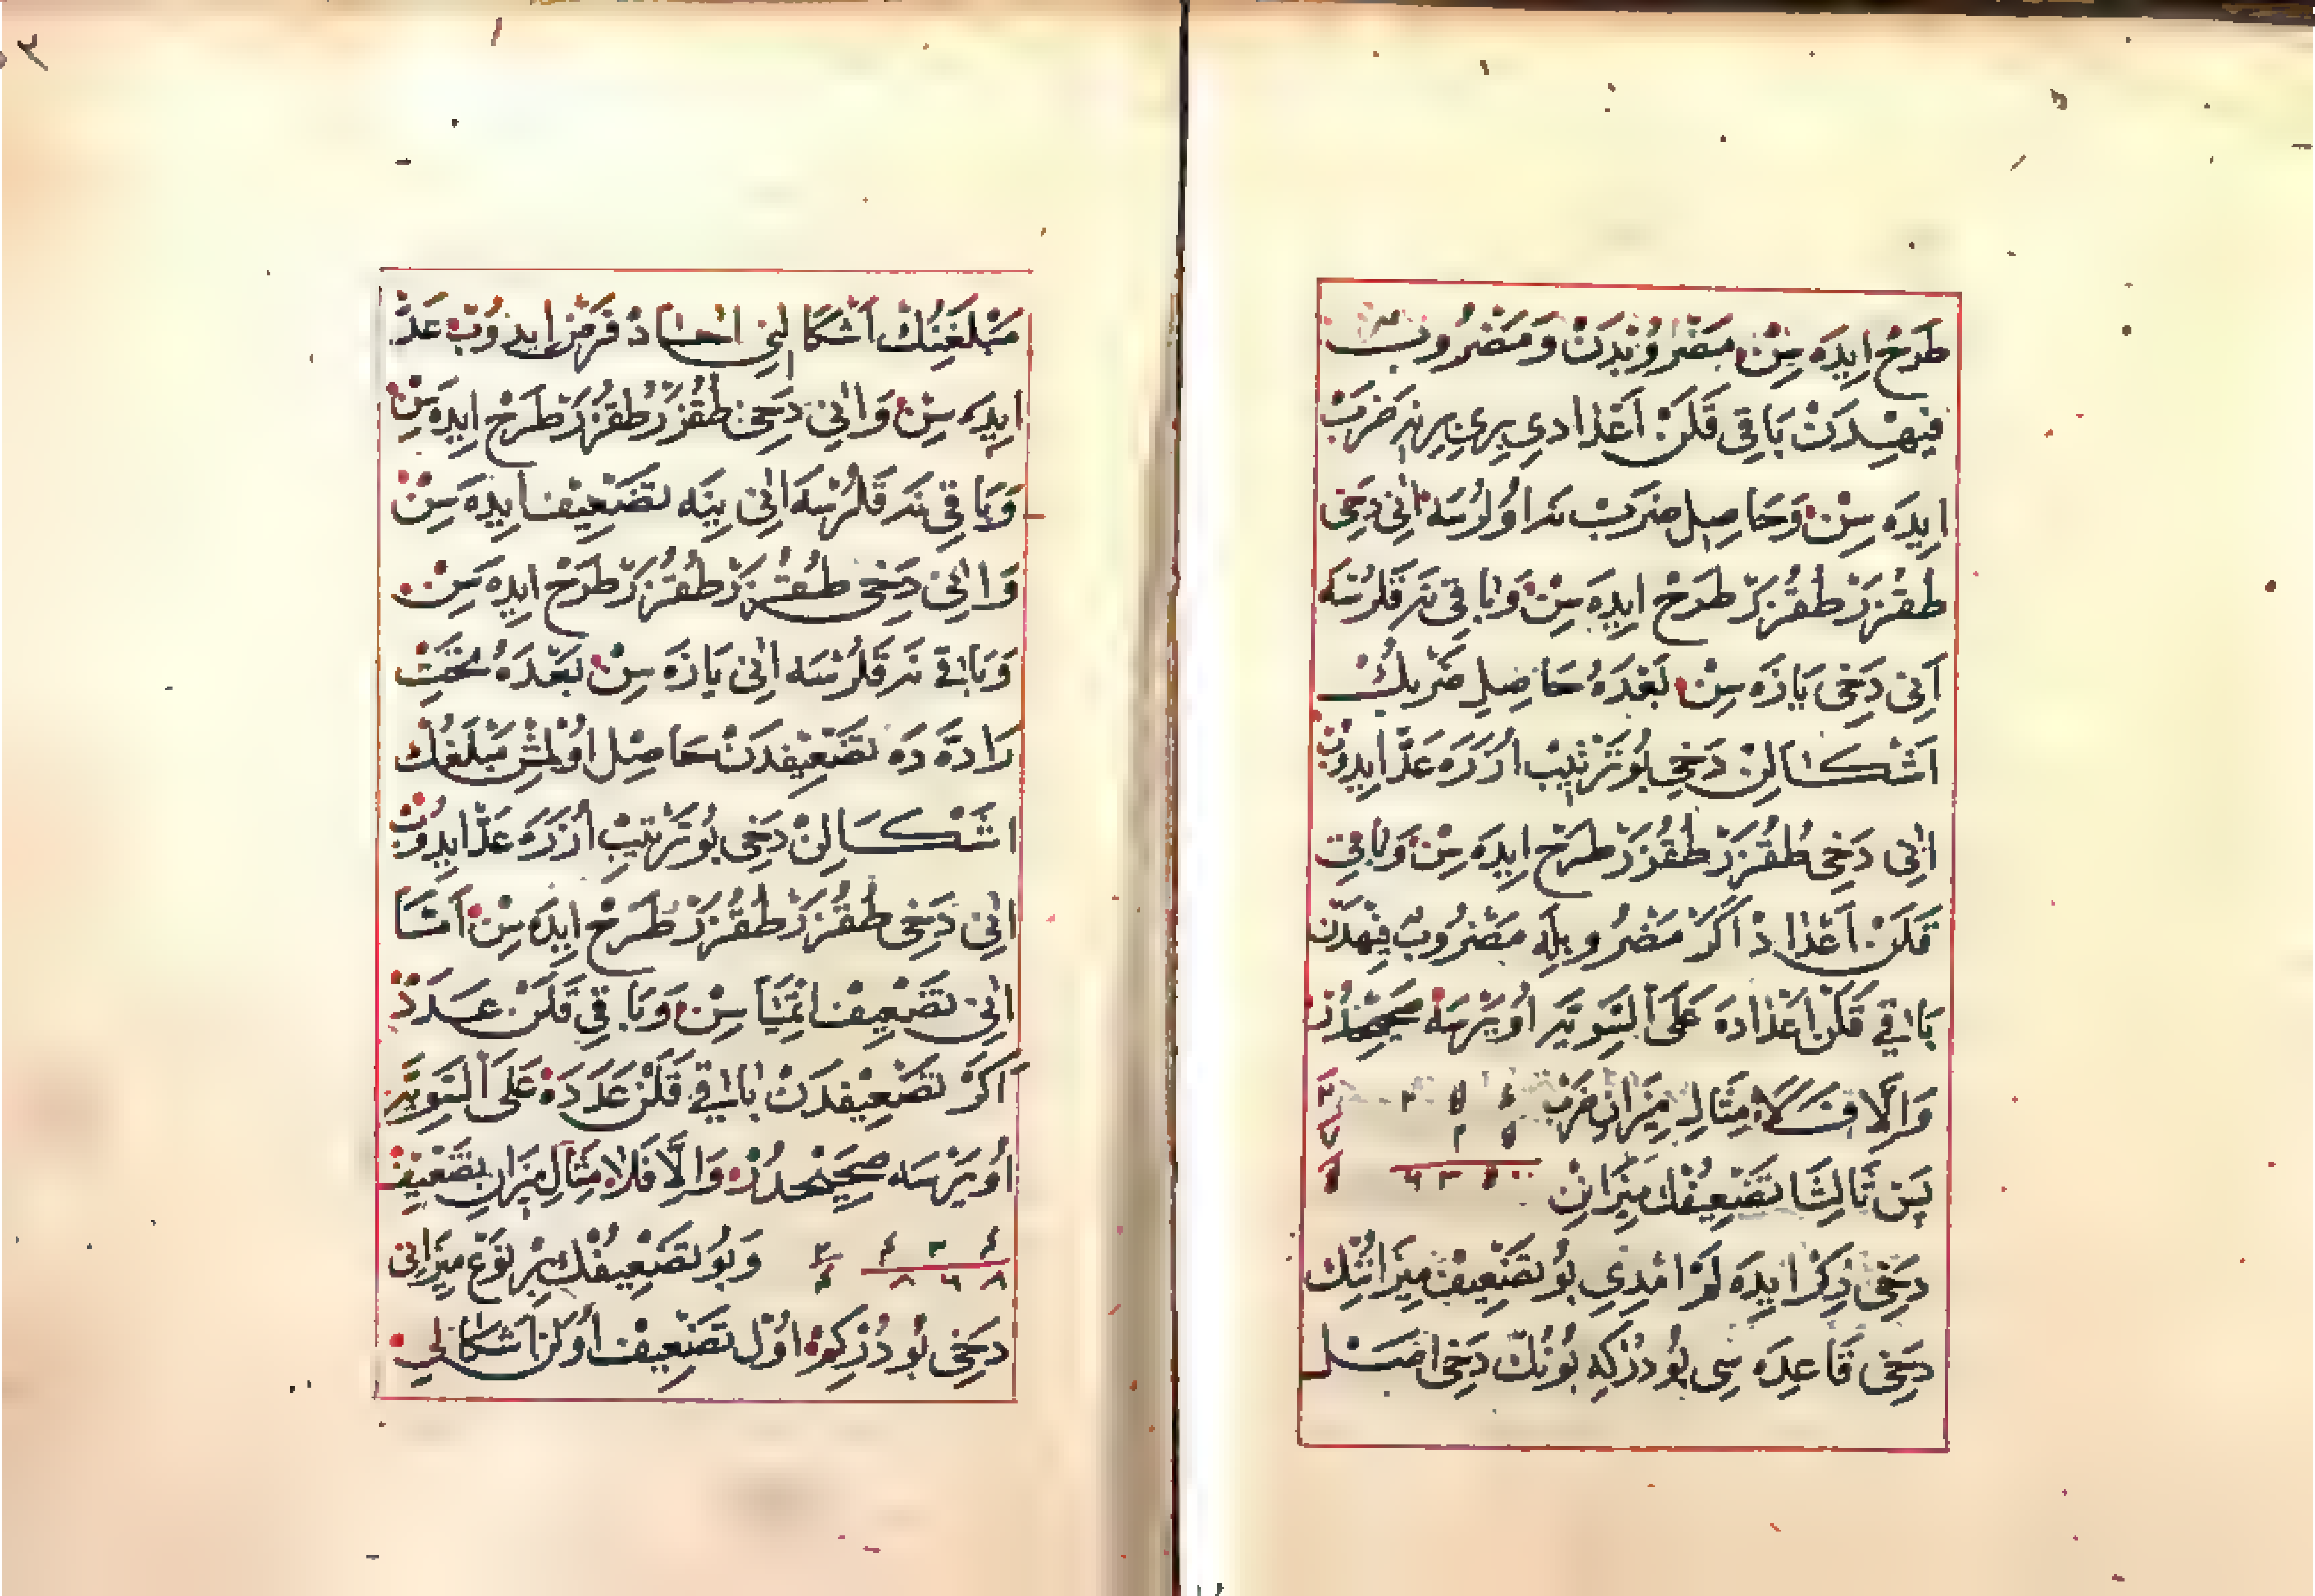 طَرْحْ اِيدَه سِنْ مَضْرُوبْدَنْ وَمَضْرُوبٌ
فِيهِدَنْ بَاقِى قَلَنْ اَعْدَادِى بِرِى بِرِنَه ضَرْبْ
اِيدَه سِنْ وَحَاصِلِ ضَرْبْ نَه اُولُرْسَه اَنِى دَخِى
طُقُزَرْ طُقُزَرْ طَرْحْ اِيدَه سِنْ وَبَاقِى نَه قَلُرْسَه
اَنِى دَخِى يَازَه سِنْ بَعْدَهُ حَاصِلِ ضَرْبِكْ
اَشْكَالِنْ دَخِى بُو تَرْتِيبْ اُزَرَه عَدّ اِيدُوبْ
اَنِى دَخِى طُقُزَرْ طُقُزَرْ طَرْحْ اِيدَه سِنْ وَبَاقِى
قَلَنْ اَعْدَادْ اَكَرْ مَضْرُوبِلَه مَضْرُوبٌ فِيهدَنْ
بَاقِى قَلَنْ اَعْدَادَه عَلَى السَّوِيَّه اُويَرْسَه صَحِيحْدُرْ
وَاِلَّا فَلَا مِثَالِ مِيزَانِ ضَرْبْ
پَسْ ثَالِثًا تَضْعِيفُكْ مِيزَانِنْ
دَخِى ذِكْرْ اِيدَه لُمْ اِمْدِى بُو تَضْعِيفْ مِيزَانُنِكْ
دَخِى قَاعِدَه سِى بُودُرْكِه بُونُكْ دَخِى اَصْلْ
مَبْلَغِنُكْ اَشْكَالِنِى اٰحَادْ فَرْضْ اِيدُوبْ عَدّ
اِيدَه سِنْ وَاَنِى دَخِى طُقُزَرْ طُقُزَرْ طَرْحْ اِيدَه سِنْ
وَبَاقِى نَه قَلُرْسَه اَنِى يِنَه تَضْعِيفْ اِيدَه سِنْ
وَاَنِى دَخِى طُقُزَرْ طُقُزَرْ طَرْحْ اِيدَه سِنْ
وَبَاقِى نَه قَلُرْسَه اَنِى يَازَه سِنْ بَعْدَهُ تَخْتِ
رَادَّه دَه تَضْعِيفدَنْ حَاصِلْ اُولْمِشْ مَبْلَغُكْ
اَشْكَالِنْ دَخِى بُو تَرْتِيبْ اُزَرَه عَدّ اِيدُوبْ
اَنِى دَخِى طُقُزَرْ طُقُزَرْ طَرْحْ اِيدَه سِنْ اَمَّا
اَنِى تَضْعِيفْ اِتْمَيَا سِنْ وَبَاقِى قَلَنْ عَدَدْ
اَكَرْ تَضْعِيفدَنْ بَاقِى قَلَنْ عَدَدَه عَلَى السَّوِيَّه
اُويَرْسَه صَحِيحدُرْ وَاِلَّا فَلَا مِثَالِ مِيزَانِ تَضْعِيفْ
٤ ٣ ٤ وَبُو تَضْعِيفُكْ بِرْ نَوْعْ مِيزَانِى
دَخِى بُودُرْكِه اَوَّلْ تَضْعِيفْ اُولَنْ اَشْكَالِى